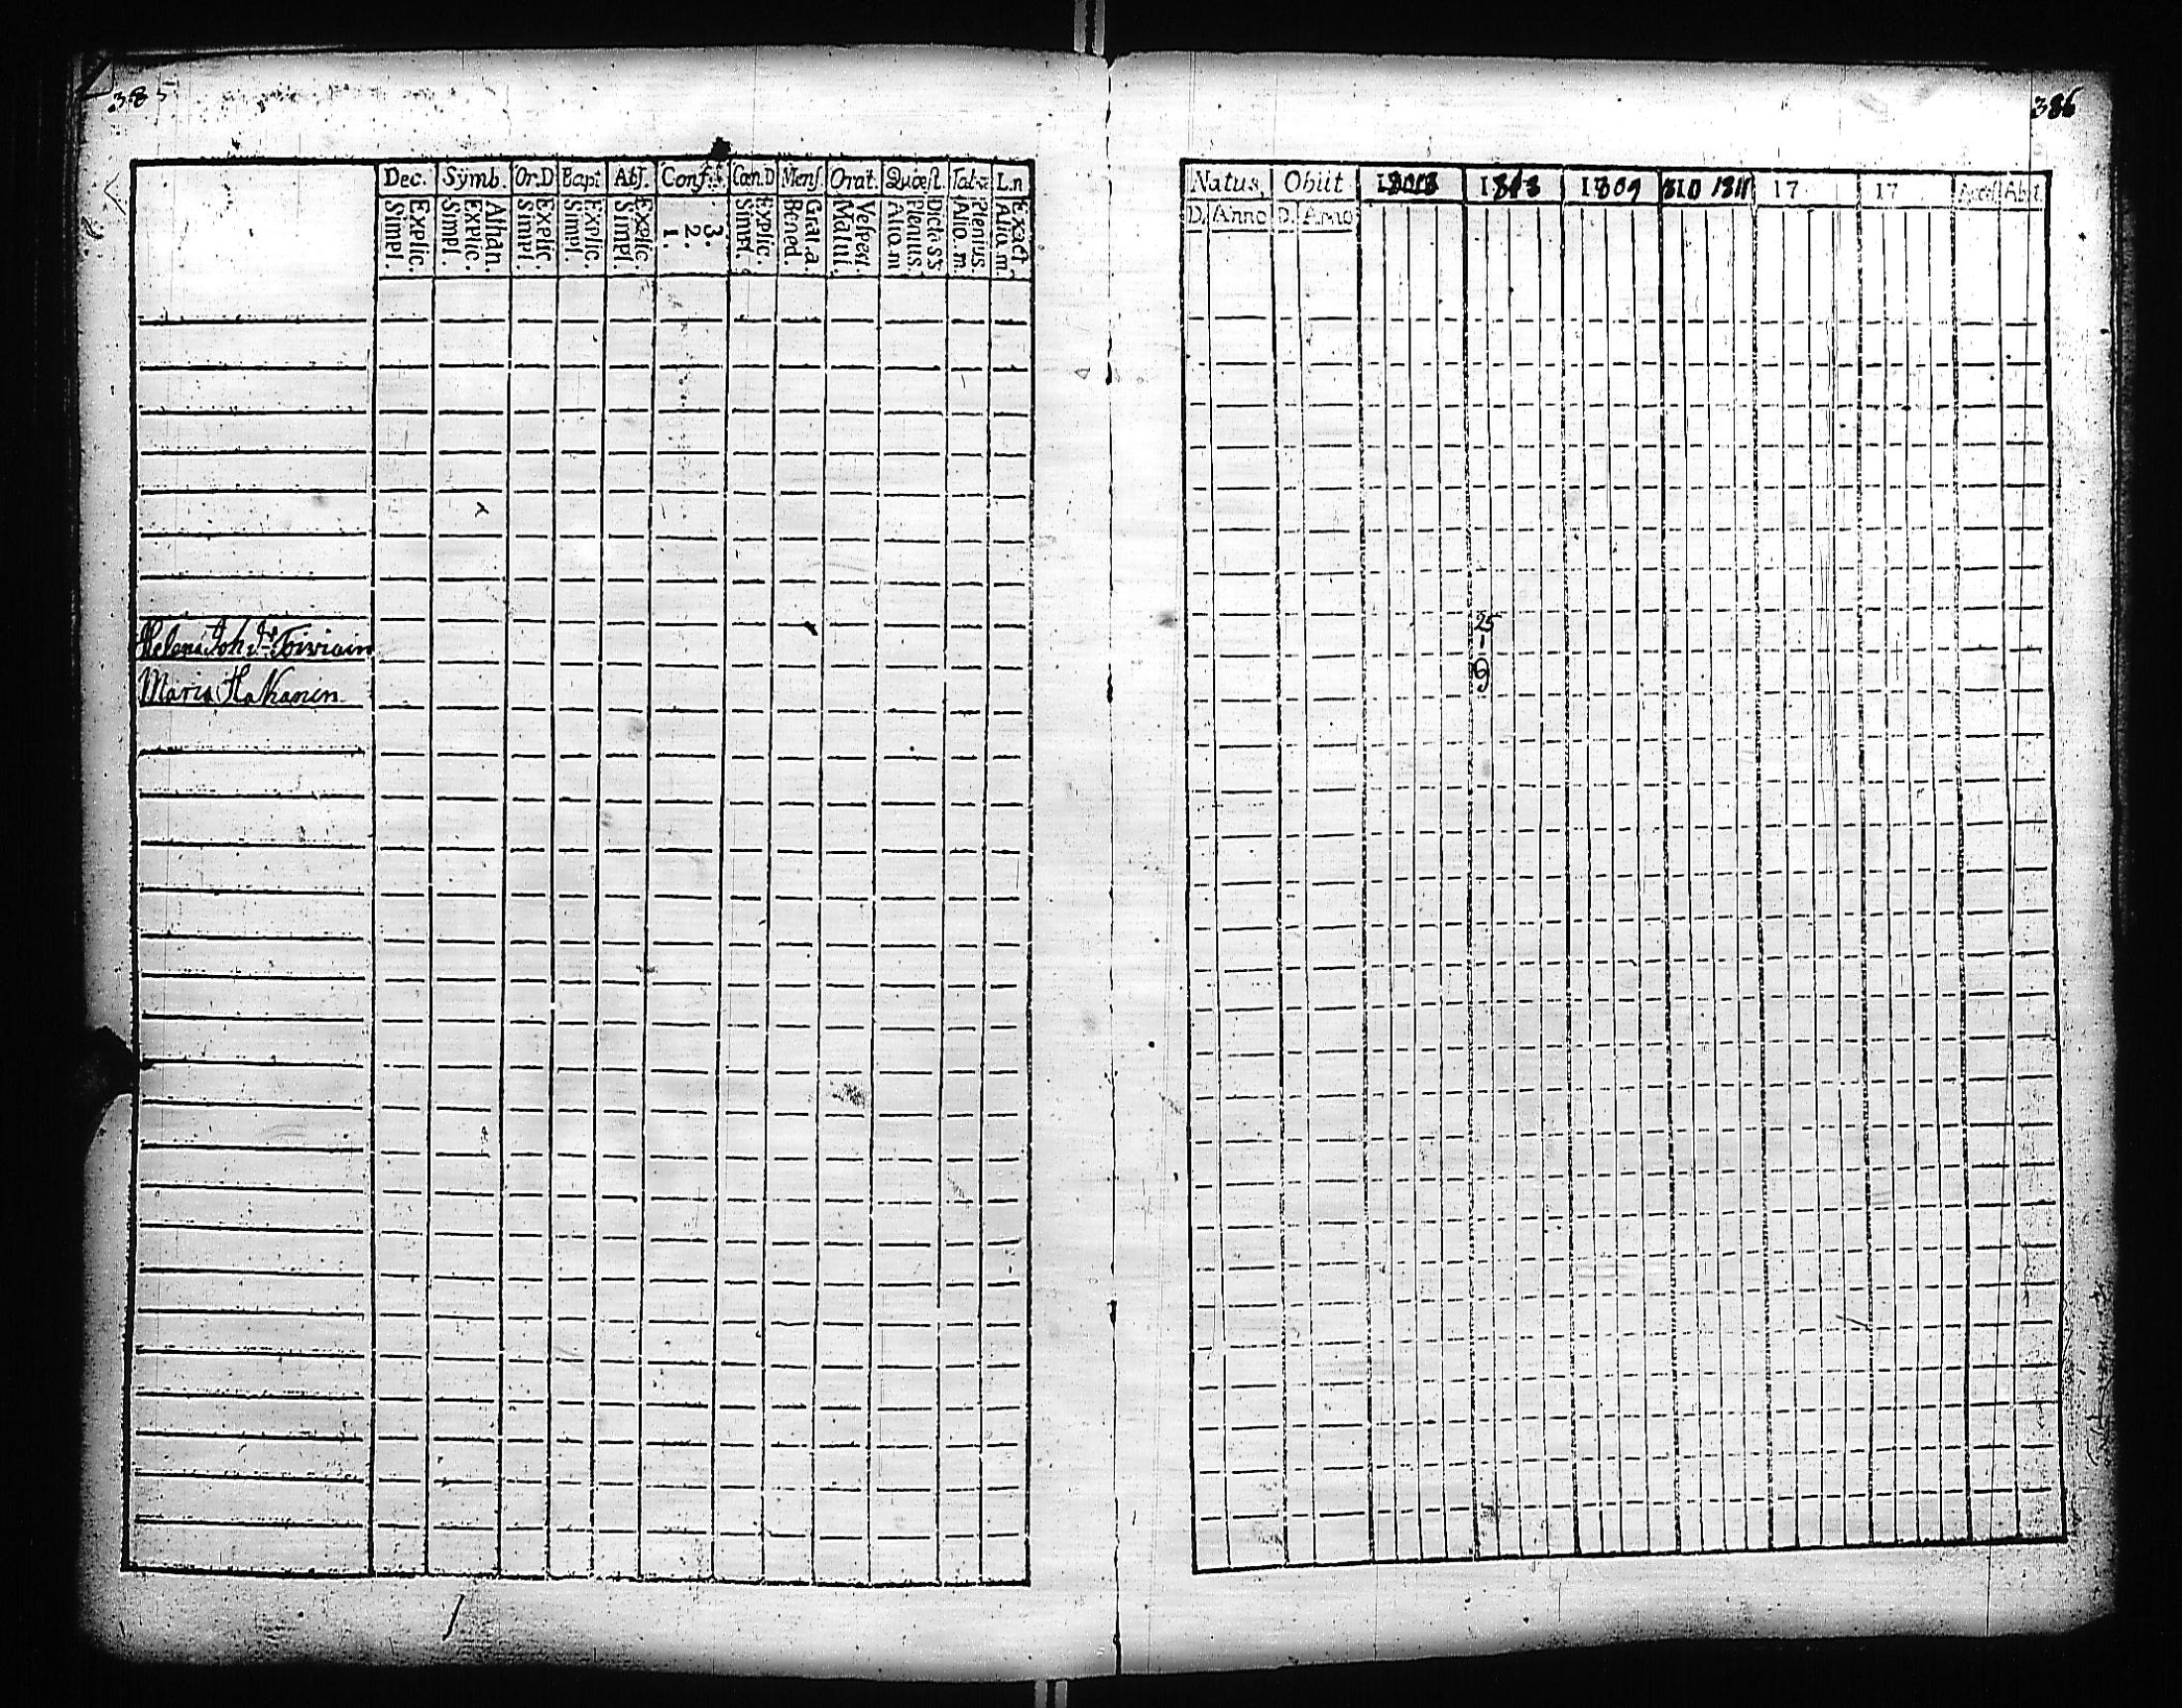 385
Dec. Symb. Or.D Bapt. Abs. Conf. Cœn.D Mens. Orat. Quæst. Tab. L.n
Simpl. Explic. Simpl. Explic. Athan. Simpl. Explic. Simpl. Explic. Simpl. Explic. 1. 2. 3. Simpl. Explic. Bened. Grat.a. Matut. Vesper. Alio.m Plenius. Dicta SS Alio.m. Plenius. Alio.m. Exact.
Helena Joh. dr Toiviain
Maria Hakanen
386
Natus. Obiit 1809 310 1811 17 17 Access. Abit.
D. Anno D. Anno
25
1
9